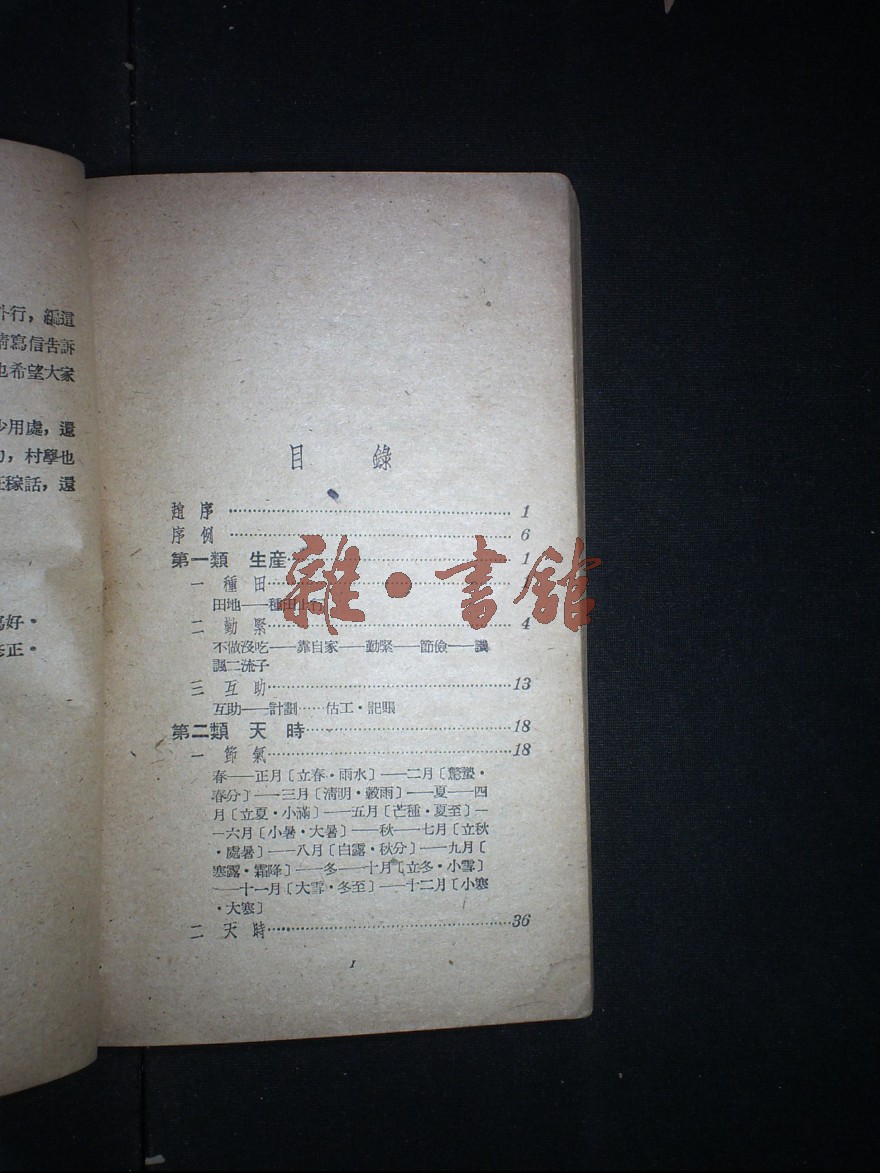 外行，編這
請寫信告訴
也希望大家
少用處，還
力，村學也
莊稼話，還
寫好·
修正·
目錄
趙序……1
序例……6
第一類 生産……1
一 種田……1
田地——種田上行
二 勤緊……4
不做沒吃——靠自家——勤緊——節儉——諷
諷二流子
三 互助……13
互助——計劃……估工·記賬
第二類 天時……18
一 節氣……18
春——正月〔立春·雨水〕——二月〔驚蟄·
春分〕——三月〔淸明·穀雨〕——夏——四
月〔立夏·小滿〕——五月〔芒種·夏至〕—
—六月〔小暑·大暑〕——秋——七月〔立秋
·處暑〕——八月〔白露·秋分〕——九月〔
寒露·霜降〕——冬——十月〔立冬·小雪〕
——十一月〔大雪·冬至〕——十二月〔小寒
·大寒〕
二 天時……36
I
雜·書館